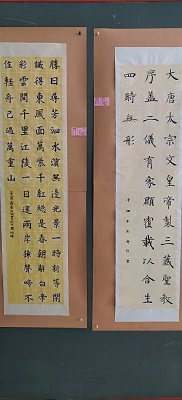 大唐太宗文皇帝製三藏聖教
序盖二儀有象顯覆載以含生
四時無形
勝日尋芳泗水濱無邊光景一時新等閒
識得東風面萬紫千紅總是春朝辭白帝
彩雲間千里江陵一日還兩岸猿聲啼不
住輕舟已過萬重山